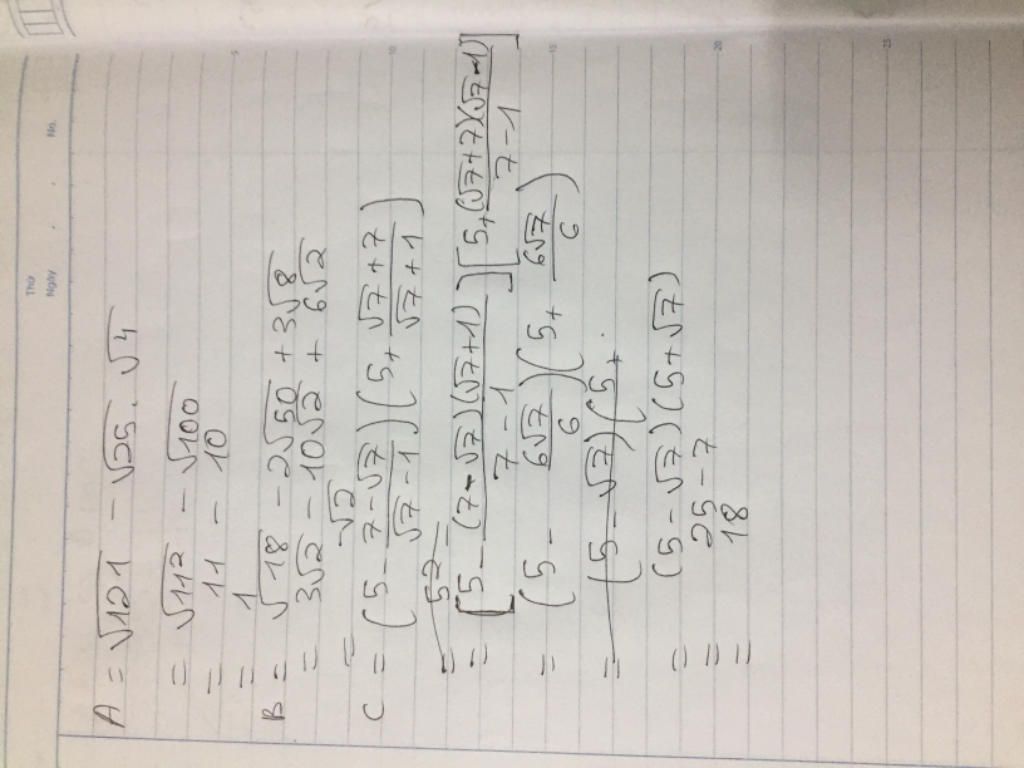 Thứ
Ngày No.
5 10 15 20 25
A = √121 - √25 . √4
= √11² - √100
= 11 - 10
= 1
B = √18 - 2√50 + 3√8
= 3√2 - 10√2 + 6√2
= -√2
C = (5 - (7-√7)/(√7-1)) (5 + (√7+7)/(√7+1))
=
= [5 - (7-√7)(√7+1)/(7-1)] [5 + (√7+7)(√7-1)/(7-1)]
= (5 - 6√7/6) (5 + 6√7/6)
= (5 - √7) (5 +
= (5 - √7) (5 + √7)
= 25 - 7
= 18